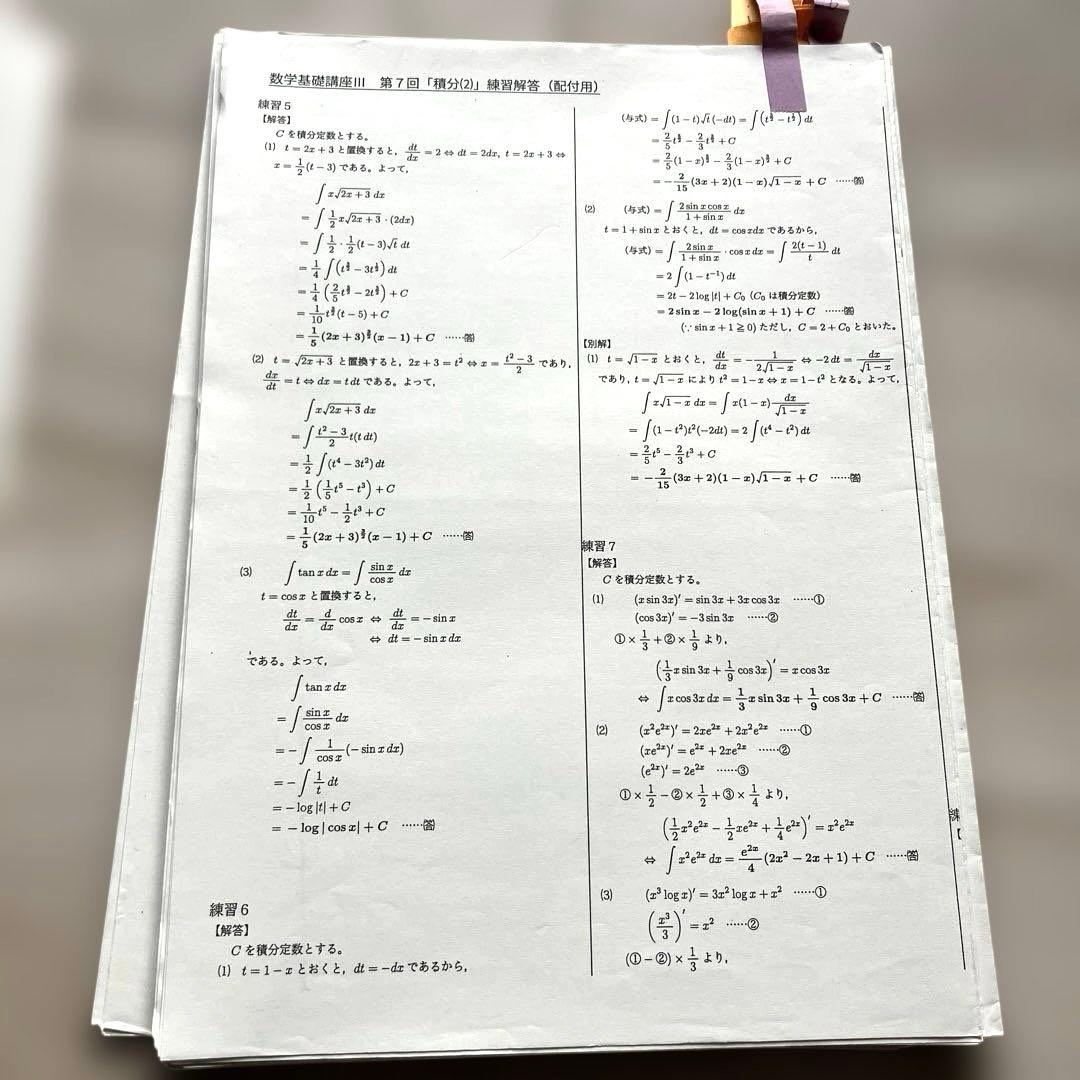 数学基礎講座III　第7回「積分(2)」練習解答（配付用）
練習5
【解答】
C を積分定数とする。
(1) t = 2x + 3 と置換すると，dt/dx = 2 ⇔ dt = 2dx, t = 2x + 3 ⇔
x = 1/2 (t − 3) である。よって，
∫ x√(2x + 3) dx
= ∫ 1/2 x√(2x + 3) · (2dx)
= ∫ 1/2 · 1/2 (t − 3)√t dt
= 1/4 ∫ (t^(3/2) − 3t^(1/2)) dt
= 1/4 (2/5 t^(5/2) − 2t^(3/2)) + C
= 1/10 t^(3/2) (t − 5) + C
= 1/5 (2x + 3)^(3/2) (x − 1) + C ……答
(2) t = √(2x + 3) と置換すると，2x + 3 = t² ⇔ x = (t² − 3)/2 であり，
dx/dt = t ⇔ dx = t dt である。よって，
∫ x√(2x + 3) dx
= ∫ (t² − 3)/2 t(t dt)
= 1/2 ∫ (t⁴ − 3t²) dt
= 1/2 (1/5 t⁵ − t³) + C
= 1/10 t⁵ − 1/2 t³ + C
= 1/5 (2x + 3)^(3/2) (x − 1) + C ……答
(3) ∫ tan x dx = ∫ sin x/cos x dx
t = cos x と置換すると，
dt/dx = d/dx cos x ⇔ dt/dx = − sin x
⇔ dt = − sin x dx
である。よって，
∫ tan x dx
= ∫ sin x/cos x dx
= − ∫ 1/cos x (− sin x dx)
= − ∫ 1/t dt
= − log |t| + C
= − log | cos x| + C ……答
練習6
【解答】
C を積分定数とする。
(1) t = 1 − x とおくと，dt = −dx であるから，
(与式) = ∫ (1 − t)√t (−dt) = ∫ (t^(3/2) − t^(1/2)) dt
= 2/5 t^(5/2) − 2/3 t^(3/2) + C
= 2/5 (1 − x)^(5/2) − 2/3 (1 − x)^(3/2) + C
= − 2/15 (3x + 2)(1 − x)√(1 − x) + C ……答
(2) (与式) = ∫ 2 sin x cos x/(1 + sin x) dx
t = 1 + sin x とおくと，dt = cos xdx であるから，
(与式) = ∫ 2 sin x/(1 + sin x) · cos x dx = ∫ 2(t − 1)/t dt
= 2 ∫ (1 − t⁻¹) dt
= 2t − 2 log |t| + C₀（C₀ は積分定数）
= 2 sin x − 2 log(sin x + 1) + C ……答
(∵ sin x + 1 ≧ 0) ただし，C = 2 + C₀ とおいた。
【別解】
(1) t = √(1 − x) とおくと，dt/dx = − 1/(2√(1 − x)) ⇔ −2 dt = dx/√(1 − x)
であり，t = √(1 − x) により t² = 1 − x ⇔ x = 1 − t² となる。よって，
∫ x√(1 − x) dx = ∫ x(1 − x) dx/√(1 − x)
= ∫ (1 − t²)t²(−2dt) = 2 ∫ (t⁴ − t²) dt
= 2/5 t⁵ − 2/3 t³ + C
= − 2/15 (3x + 2)(1 − x)√(1 − x) + C ……答
練習7
【解答】
C を積分定数とする。
(1) (x sin 3x)′ = sin 3x + 3x cos 3x ……①
(cos 3x)′ = −3 sin 3x ……②
① × 1/3 + ② × 1/9 より，
(1/3 x sin 3x + 1/9 cos 3x)′ = x cos 3x
⇔ ∫ x cos 3x dx = 1/3 x sin 3x + 1/9 cos 3x + C ……答
(2) (x²e^(2x))′ = 2xe^(2x) + 2x²e^(2x) ……①
(xe^(2x))′ = e^(2x) + 2xe^(2x) ……②
(e^(2x))′ = 2e^(2x) ……③
① × 1/2 − ② × 1/2 + ③ × 1/4 より，
(1/2 x²e^(2x) − 1/2 xe^(2x) + 1/4 e^(2x))′ = x²e^(2x)
⇔ ∫ x²e^(2x) dx = e^(2x)/4 (2x² − 2x + 1) + C ……答
(3) (x³ log x)′ = 3x² log x + x² ……①
(x³/3)′ = x² ……②
(① − ②) × 1/3 より，